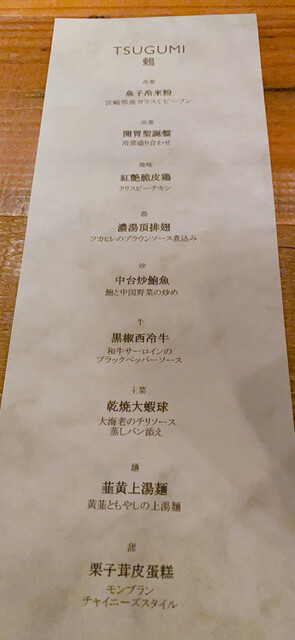 TSUGUMI
鶫
冷菜
魚子冷米粉
宮崎県産カラスミビーフン
冷菜
開胃聖誕盤
冷菜盛り合わせ
焼味
紅艶脆皮鶏
クリスピーチキン
湯
濃湯頂排翅
フカヒレのブラウンソース煮込み
炒
中台炒鮑魚
鮑と中国野菜の炒め
牛
黒椒西冷牛
和牛サーロインの
ブラックペッパーソース
主菜
乾焼大蝦球
大海老のチリソース
蒸しパン添え
麺
韮黄上湯麺
黄韮ともやしの上湯麺
甜
栗子茸皮蛋糕
モンブラン
チャイニーズスタイル